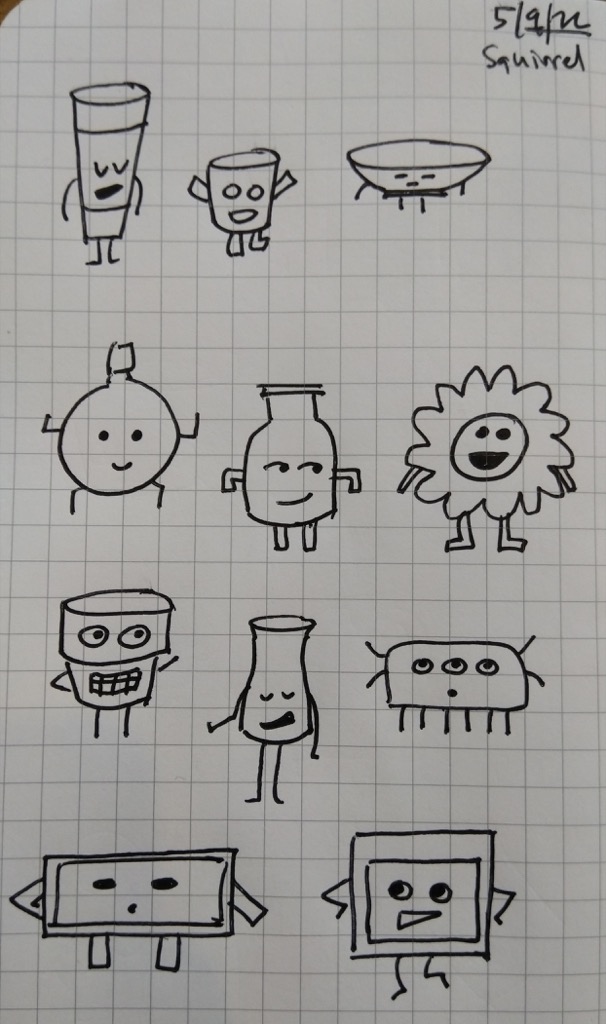 5/9/22
Squirrel